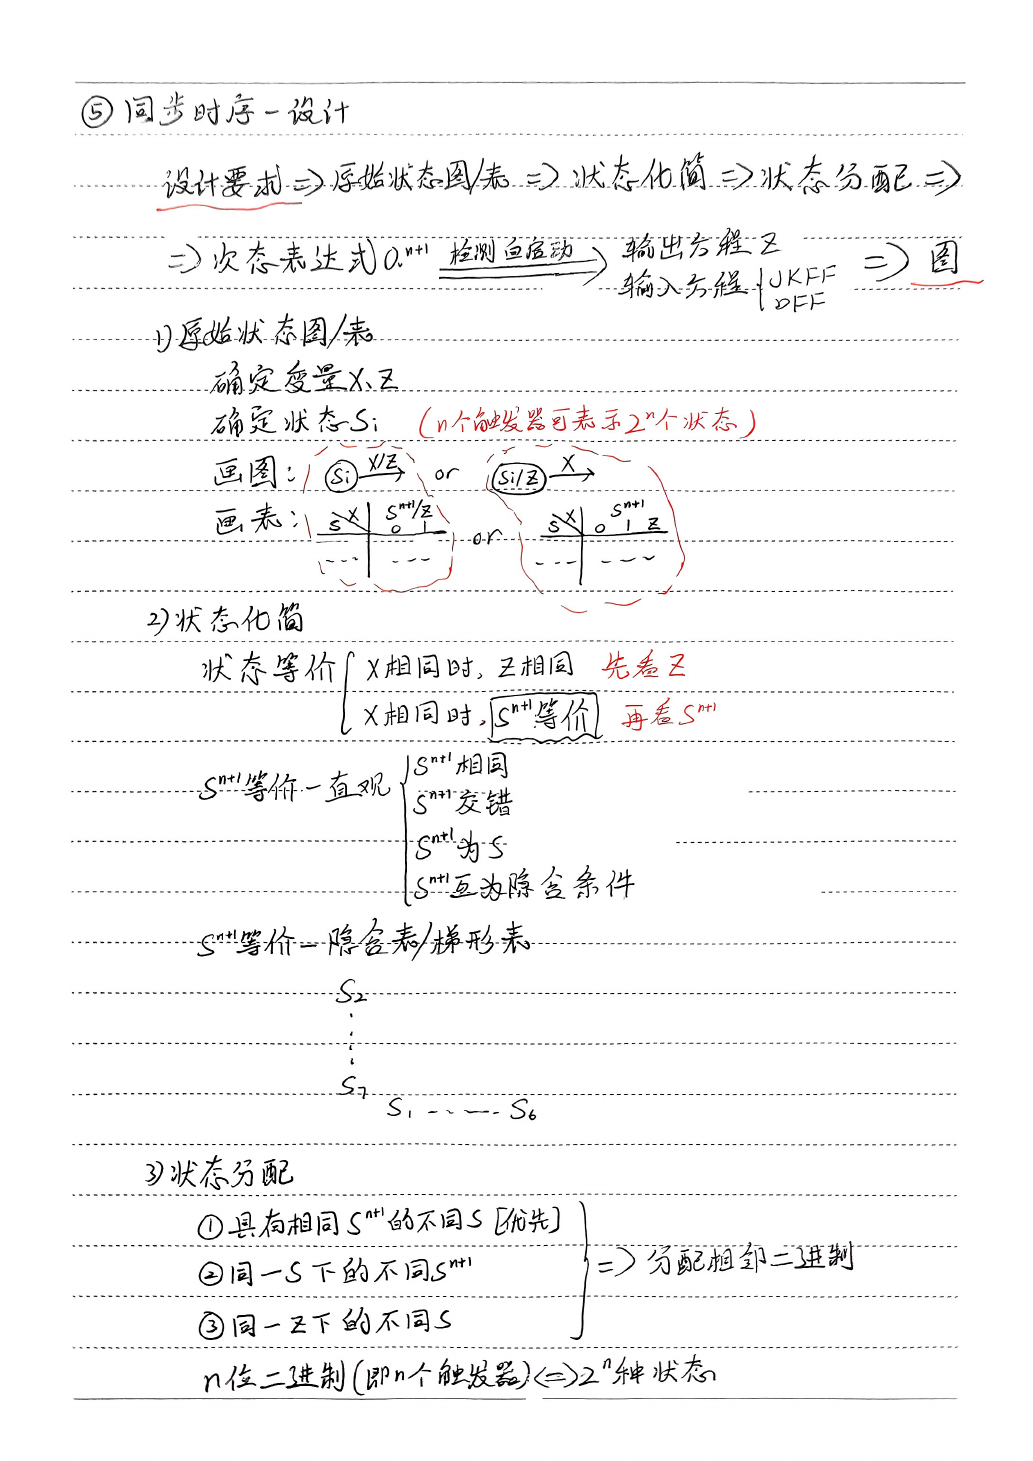 ⑤同步时序—设计
设计要求⇒原始状态图/表⇒状态化简⇒状态分配⇒
⇒次态表达式Qⁿ⁺¹ 检测自启动 输出方程Z ⇒图
输入方程{JKFF
DFF
1)原始状态图/表
确定变量X、Z
确定状态Si (n个触发器可表示2ⁿ个状态)
画图: Si X/Z or Si/Z X
画表: S X Sⁿ⁺¹/Z 0 1 or S X Sⁿ⁺¹ 0 1 Z
--- --- --- ---
2)状态化简
状态等价{X相同时, Z相同 先看Z
X相同时, Sⁿ⁺¹等价 再看Sⁿ⁺¹
Sⁿ⁺¹等价—直观{Sⁿ⁺¹相同
Sⁿ⁺¹交错
Sⁿ⁺¹为S
Sⁿ⁺¹互为隐含条件
Sⁿ⁺¹等价—隐含表/梯形表
S₂
⋮
S₇
S₁ ---- S₆
3)状态分配
①具有相同Sⁿ⁺¹的不同S [优先]
②同一S下的不同Sⁿ⁺¹ ⇒分配相邻二进制
③同一Z下的不同S
n位二进制(即n个触发器)⇔2ⁿ种状态